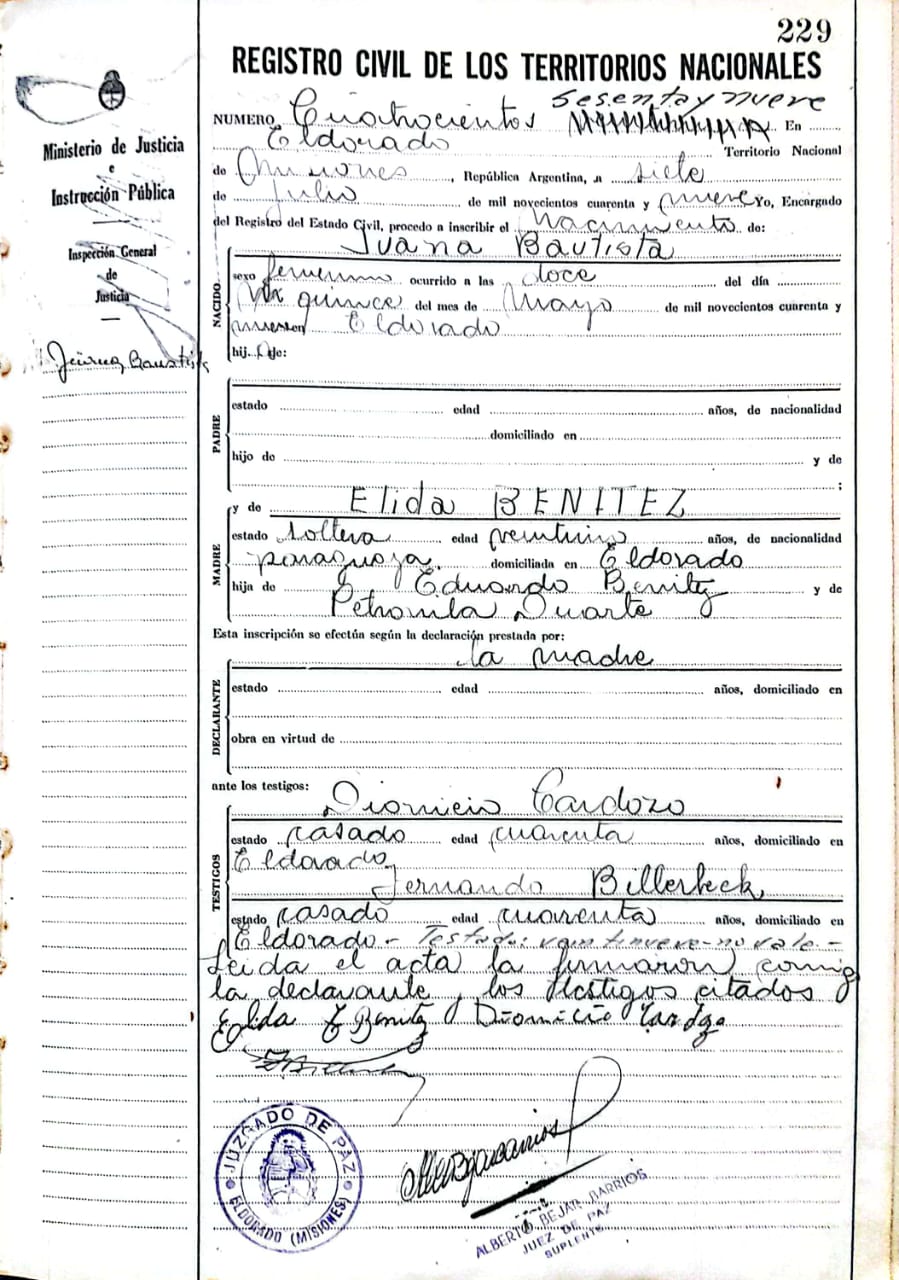 229
REGISTRO CIVIL DE LOS TERRITORIOS NACIONALES
sesenta y nueve
NUMERO Cuatrocientos En
Eldorado Territorio Nacional
de Misiones, República Argentina, a siete
de Julio de mil novecientos cuarenta y nueve Yo, Encargado
del Registro del Estado Civil, procedo a inscribir el Nacimiento de:
Ministerio de Justicia
e
Instrucción Pública
Inspección General
de
Justicia
Juana Bautista
NACIDO
Juana Bautista
sexo femenino ocurrido a las doce del día
quince del mes de Mayo de mil novecientos cuarenta y
nueve en Eldorado
hij.a de:
PADRE
estado edad años, de nacionalidad
domiciliado en
hijo de y de
;
MADRE
y de Elida BENITEZ
estado soltera edad veintiuno años, de nacionalidad
paraguaya domiciliada en Eldorado
hija de Eduardo Benitez y de
Petronila Duarte
Esta inscripción se efectúa según la declaración prestada por:
la madre
DECLARANTE
estado edad años, domiciliado en
obra en virtud de
ante los testigos:
TESTIGOS
Dionicio Cardozo
estado casado edad cuarenta años, domiciliado en
Eldorado
Fernando Billerbeck
estado casado edad cuarenta años, domiciliado en
Eldorado - Testado: veintinueve - no vale -
Leida el acta la firmaron conmigo
la declarante, los testigos citados
Elida Benitez Dionicio Cardozo
JUZGADO DE PAZ
ELDORADO (MISIONES)
ALBERTO BEJAR BARRIOS
JUEZ DE PAZ
SUPLENTE